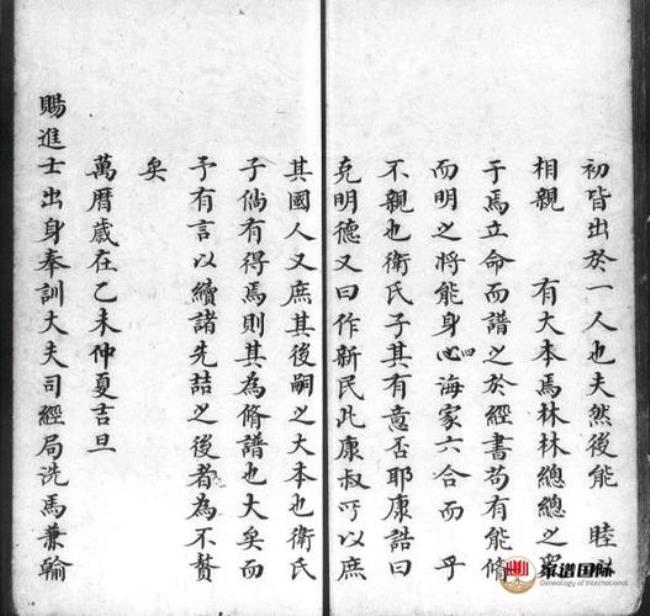 初皆出於一人也夫然後能 睦
相親 有大本焉林林總總之
于焉立命而譜之於經書苟有能脩
而明之將能身心四海家六合而 乎
不親也衛氏子其有意否耶康誥曰
克明德又曰作新民此康叔所以庶
其國人又庶其後嗣之大本也衛氏
子倘有得焉則其為脩譜也大矣而
予有言以續諸先喆之後者為不贅
矣
萬曆歲在乙未仲夏吉旦
賜進士出身奉訓大夫司經局洗馬兼翰
家谱国际
Genealogy of International